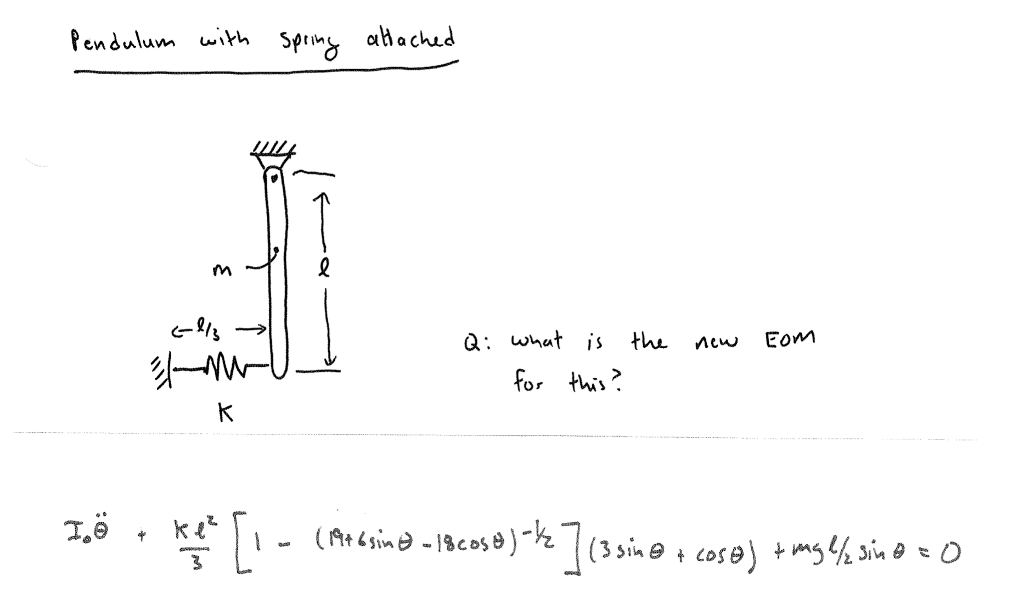 Pendulum with spring attached
m
l
l/3
K
Q: what is the new EOM
for this?
I₀θ̈ + Kl²/3 [1 - (19+6sinθ-18cosθ)^-1/2](3sinθ + cosθ) + mg l/2 sinθ = 0